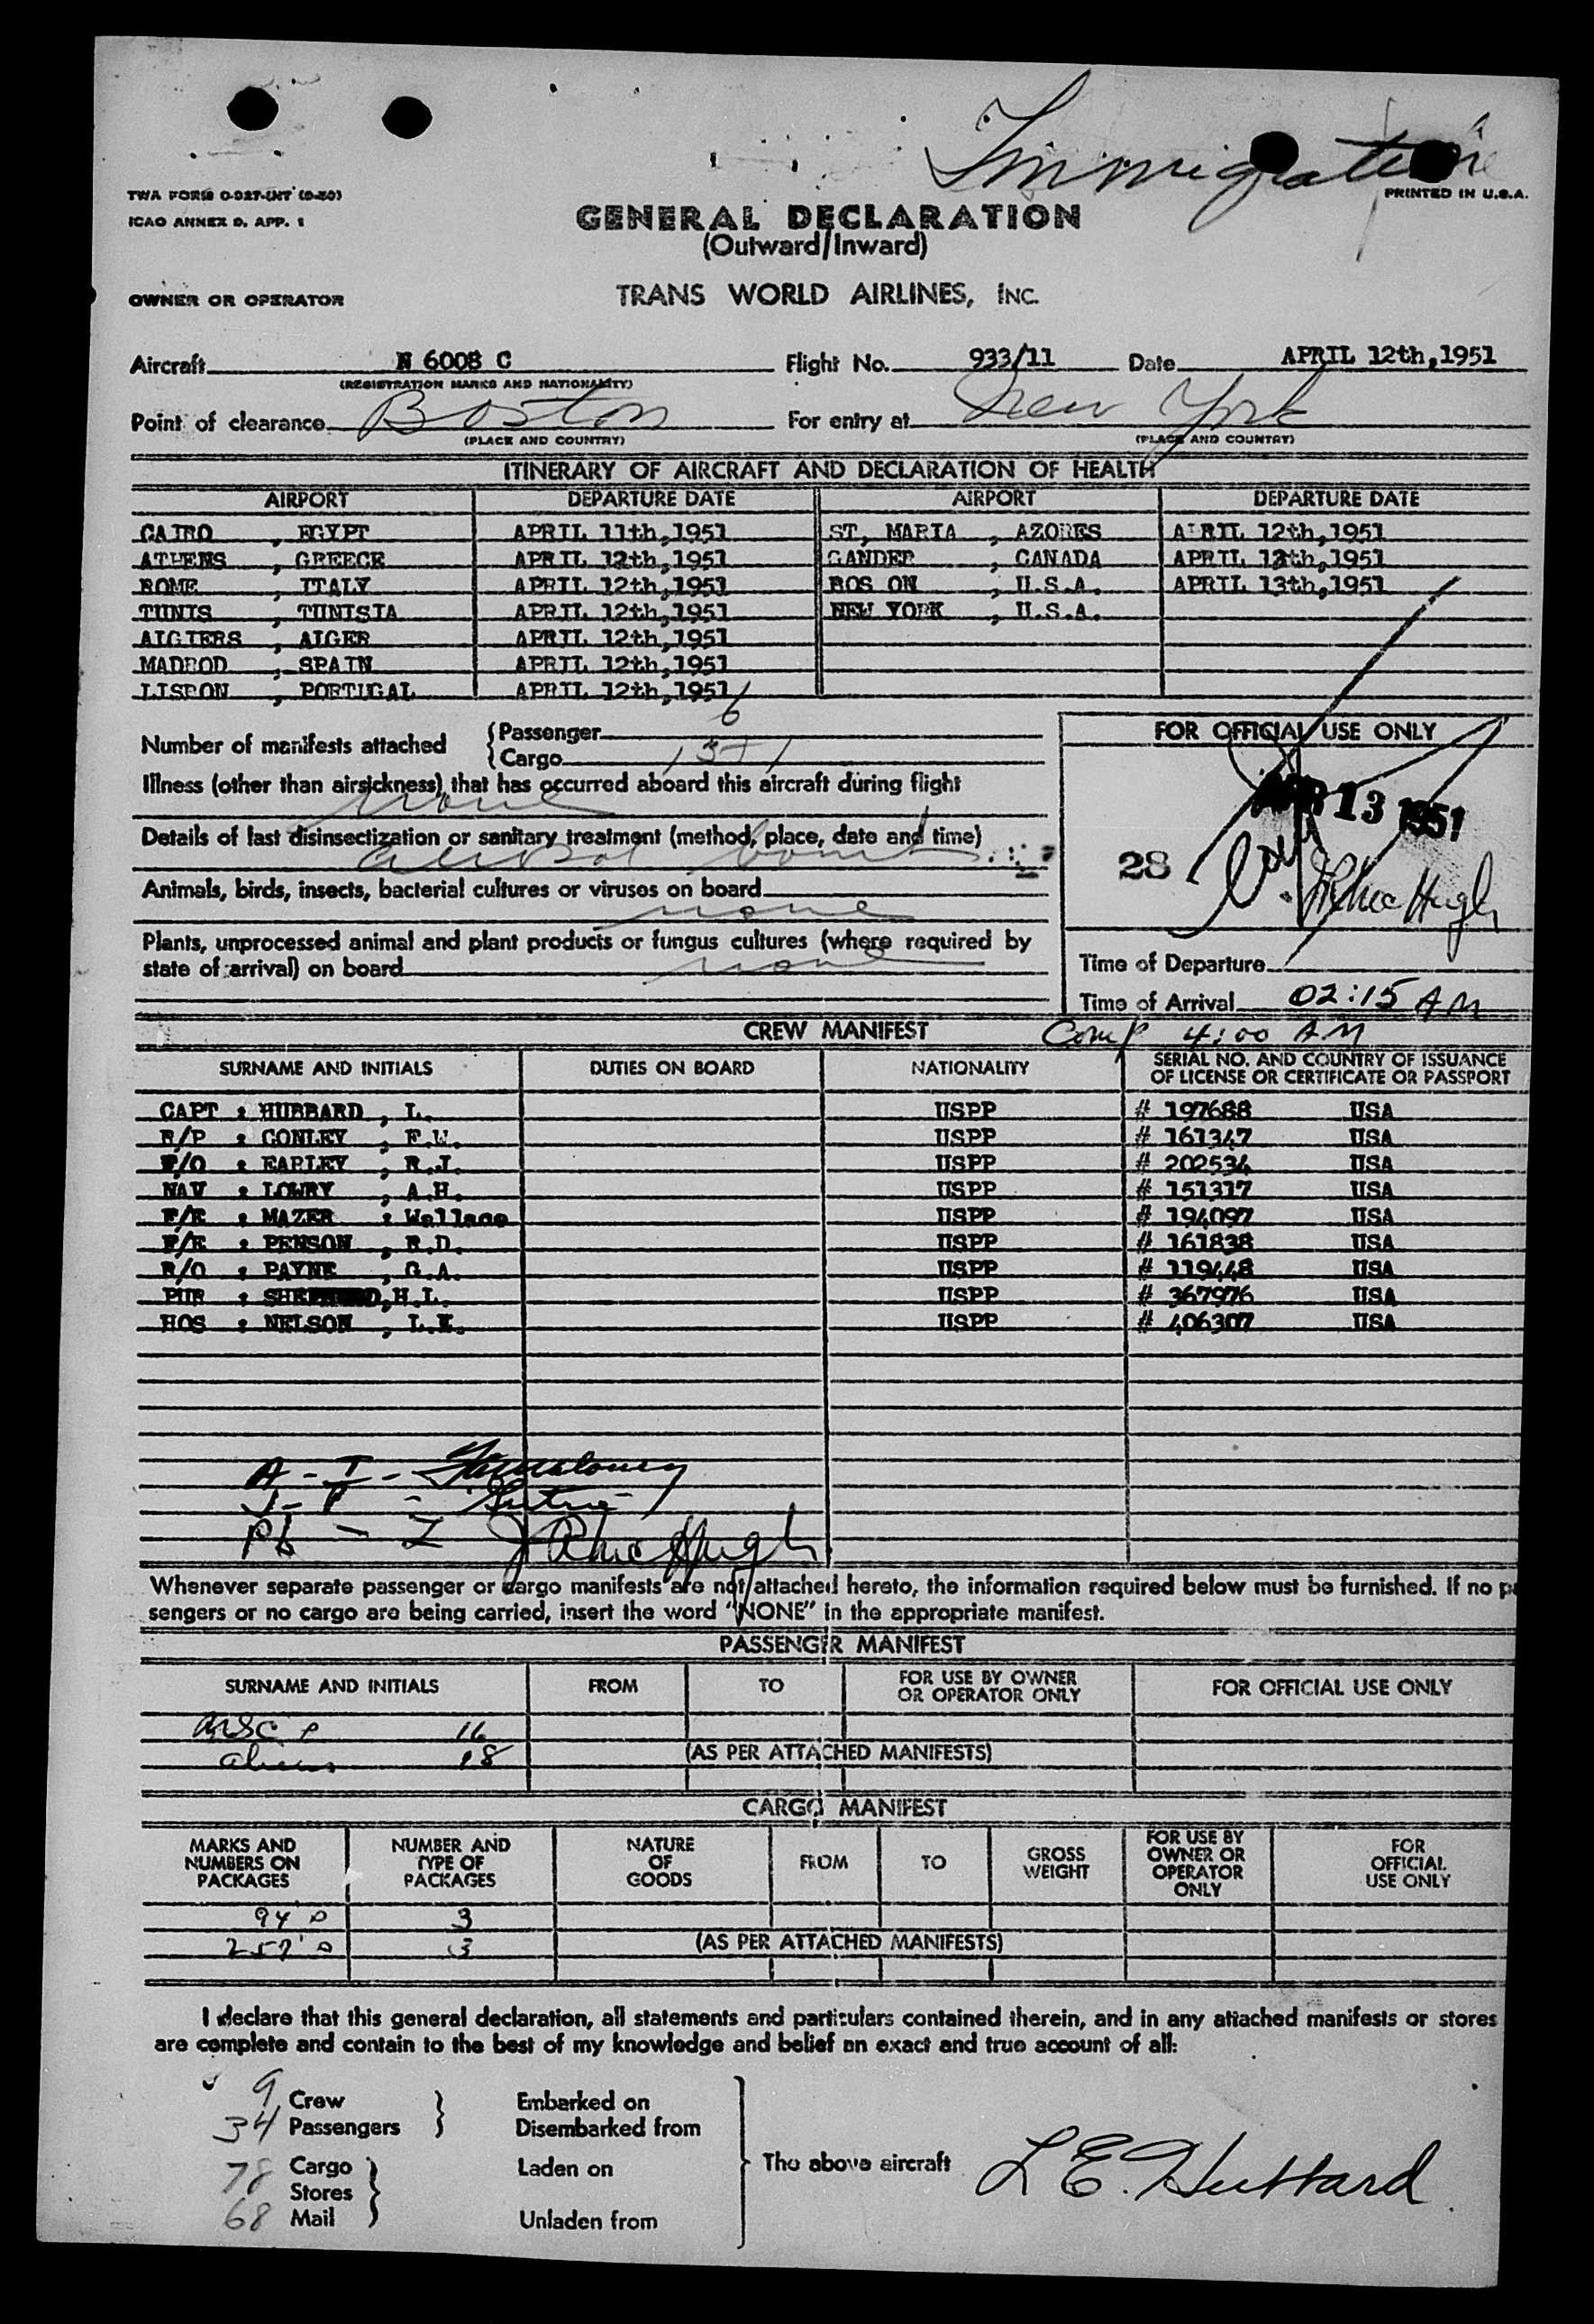 Immigration
TWA FORM O-927-INT (9-50)
PRINTED IN U.S.A.
ICAO ANNEX 9, APP. 1
GENERAL DECLARATION
(Outward/Inward)
OWNER OR OPERATOR
TRANS WORLD AIRLINES, INC.
Aircraft N 6008 C Flight No. 933/11 Date APRIL 12th,1951
(REGISTRATION MARKS AND NATIONALITY)
Point of clearance Boston For entry at New York
(PLACE AND COUNTRY) (PLACE AND COUNTRY)
ITINERARY OF AIRCRAFT AND DECLARATION OF HEALTH
AIRPORT DEPARTURE DATE AIRPORT DEPARTURE DATE
CAIRO , EGYPT APRIL 11th,1951 ST, MARIA , AZORES APRIL 12th,1951
ATHENS , GREECE APRIL 12th,1951 GANDER , CANADA APRIL 13th,1951
ROME , ITALY APRIL 12th,1951 BOS ON , U.S.A. APRIL 13th,1951
TUNIS , TUNISIA APRIL 12th,1951 NEW YORK , U.S.A.
ALGIERS , ALGER APRIL 12th,1951
MADROD , SPAIN APRIL 12th,1951
LISBON , PORTUGAL APRIL 12th,1951
Number of manifests attached
Passenger 6
Cargo
FOR OFFICIAL USE ONLY
Illness (other than airsickness) that has occurred aboard this aircraft during flight
none
APR 13 1951
Details of last disinsectization or sanitary treatment (method, place, date and time)
aerosol bomb
28
Animals, birds, insects, bacterial cultures or viruses on board
none
Plants, unprocessed animal and plant products or fungus cultures (where required by
state of arrival) on board none
Time of Departure
Time of Arrival 02:15 AM
CREW MANIFEST Comp 4:00 AM
SURNAME AND INITIALS DUTIES ON BOARD NATIONALITY SERIAL NO. AND COUNTRY OF ISSUANCE
OF LICENSE OR CERTIFICATE OR PASSPORT
CAPT : HUBBARD , L. USPP # 197688 USA
R/P : CONLEY , F.W. USPP # 161347 USA
F/O : EARLEY , R.J. USPP # 202534 USA
NAV : LOWRY , A.H. USPP # 151317 USA
F/E : MAZER : Wallace USPP # 194097 USA
F/E : PENSON , R.D. USPP # 161838 USA
R/O : PAYNE , G.A. USPP # 119448 USA
PUR : SHEPHERD,H.L. USPP # 367976 USA
HOS : NELSON , L.K. USPP # 406307 USA
A - I -
I - P -
Pb - I
Whenever separate passenger or cargo manifests are not attached hereto, the information required below must be furnished. If no pa
sengers or no cargo are being carried, insert the word "NONE" in the appropriate manifest.
PASSENGER MANIFEST
SURNAME AND INITIALS FROM TO FOR USE BY OWNER
OR OPERATOR ONLY FOR OFFICIAL USE ONLY
16
aliens 18
(AS PER ATTACHED MANIFESTS)
CARGO MANIFEST
MARKS AND
NUMBERS ON
PACKAGES
NUMBER AND
TYPE OF
PACKAGES
NATURE
OF
GOODS
FROM TO
GROSS
WEIGHT
FOR USE BY
OWNER OR
OPERATOR
ONLY
FOR
OFFICIAL
USE ONLY
94 3
257 3
(AS PER ATTACHED MANIFESTS)
I declare that this general declaration, all statements and particulars contained therein, and in any attached manifests or stores
are complete and contain to the best of my knowledge and belief an exact and true account of all:
9 Crew Embarked on
34 Passengers Disembarked from
78 Cargo Laden on The above aircraft L E. Hubbard
Stores
68 Mail Unladen from